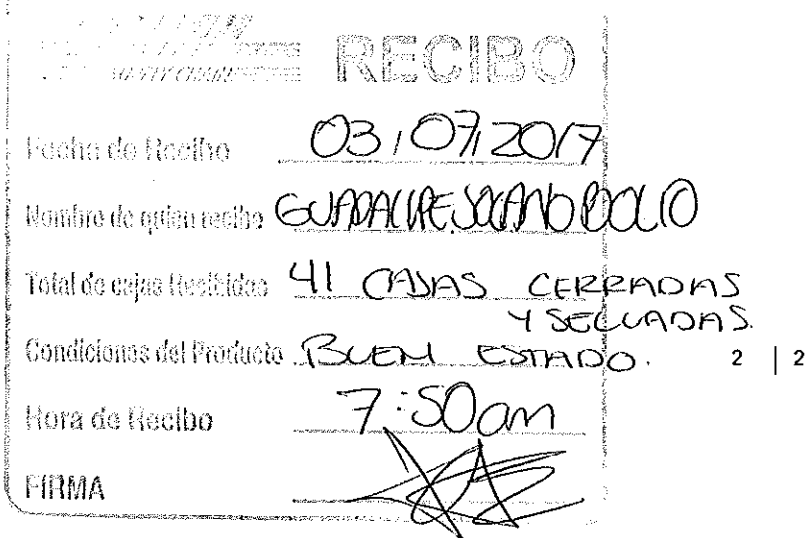 RECIBO
Fecha de Recibo 03/07/2017
Nombre de quien recibe GUADALUPE
Total de cajas Recibidas 41 CAJAS CERRADAS
Y SELLADAS.
Condiciones del Producto BUEN ESTADO. 2 | 2
Hora de Recibo 7:50am
FIRMA